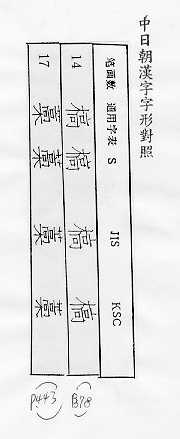 中日朝漢字字形對照
笔画数 通用字表 S JIS KSC
14 槁 槁 槁 槁
17 藁 藁 藁 藁
P443